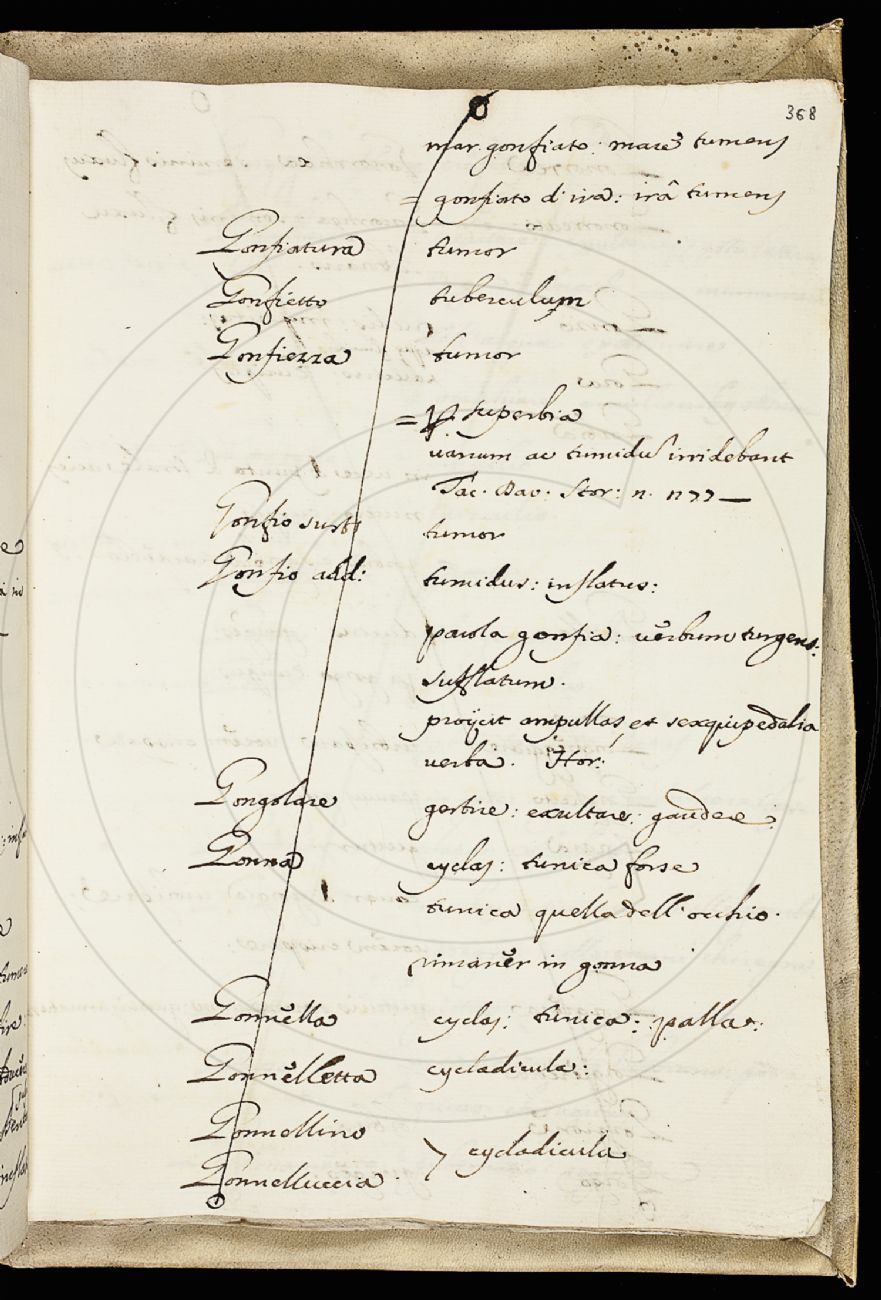 368
mar gonfiato: mare tumens
= gonfiato d'ira: irâ tumens
Gonfiatura tumor
Gonfietto tuberculum
Gonfiezza tumor
= p. superbia
uanum ac tumidu' irridebant
Tac. Dav. Stor: n. n77 —
Gonfio sust: tumor
Gonfio add: tumidus: inflatus:
parola gonfia: uerbum turgens:
sufflatum.
proijcit ampullas, et sexquipedalia
uerba. Hor:
Gongolare gestire: exultare: gaudere:
Gonna cyclas: tunica forse
tunica quella dell'occhio.
rimaner in gonna
Gonnella cyclas: tunica: palla:
Gonnelletta cycladicula:
Gonnellino
Gonnelluccia } cycladicula